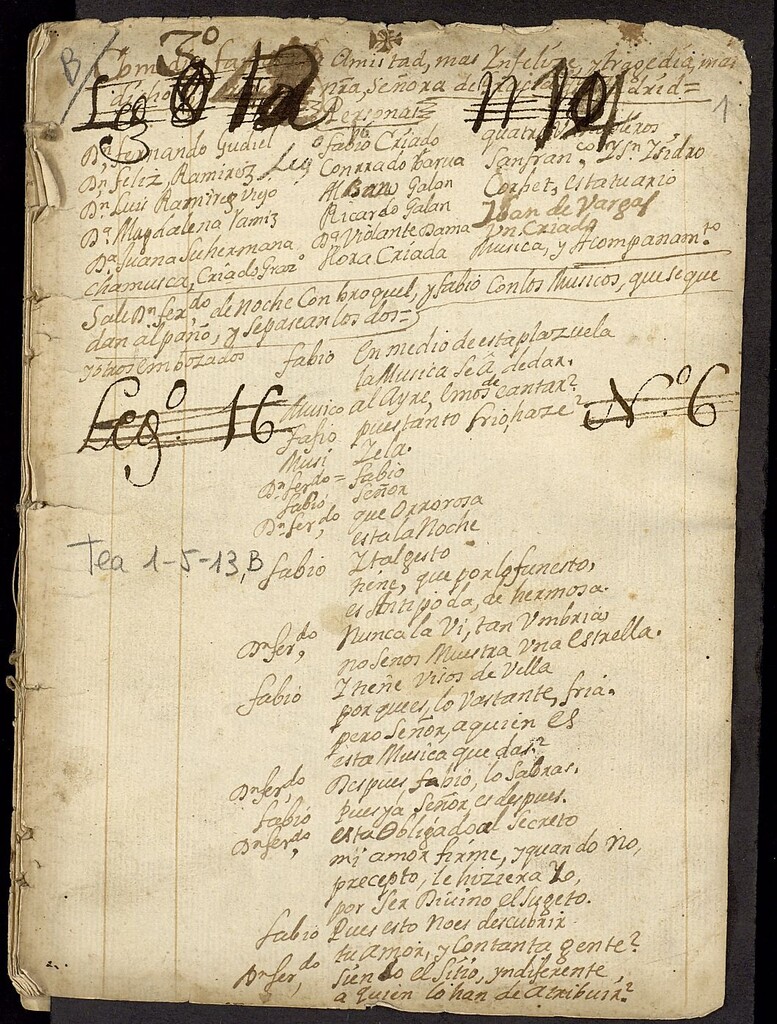 3º
B
Comedia fa Amistad, mas Infelize, y tragedia, mas
nrã, Señora de Madrid=
Leg 8
Personas
1
Dn fernando Gudiel fabio Criado quatro
Dn feliz Ramirez Conrrado Barua Sanfran.co Y Sn Ysidro
Dn Luis Ramirez Viejo Albano Galan Corbet, estatuario
Dª Magdalena Dama Ricardo Galan Iban de Vargas
Dª Juana Su hermana Dª Violante Dama Vn Criado
chamusca, Criado Grazº flora Criada Musica, y Acompanam.to
Sale Dn fer.do de Noche Con broquel, y fabio Con los Musicos, que se que
dan al paño, y se pasean los dos=
y otros embozados
fabio En medio de esta plazuela
la Musica se â, de dar.
Musico al Ayre, emos de cantar?
fabio pues tanto frio haze?
Legº. 16
N.º 6
Musi Zela.
Dn ferdo= fabio
fabio Señor
Dn fer,do que Orrorosa
esta la Noche
Tea 1-5-13, B
fabio Y tal gesto
tiene, que por lo funesto,
es Antipoda, de hermosa.
Dn fer,do Nunca la Vi, tan Vmbria
no Senos Muestra Vna Estrella.
fabio Y tiene Visos de Villa
por que es, lo Vastante, fria.
pero Señor, a quien es
esta Musica que das?
Dn fer,do Despues fabio, lo Sabras.
fabio Pues ya Señor es despues.
Dn fer,do esta Obligado al Secreto
mi amor firme, y quando No,
precepto, le hiziera Yo,
por Ser Divino el Sugeto.
fabio Pues esto No es descubrir
tu Amor, y Con tanta gente?
Dn fer,do Siendo el Sitio, yndiferente,
a quien lo han de Atribuir?